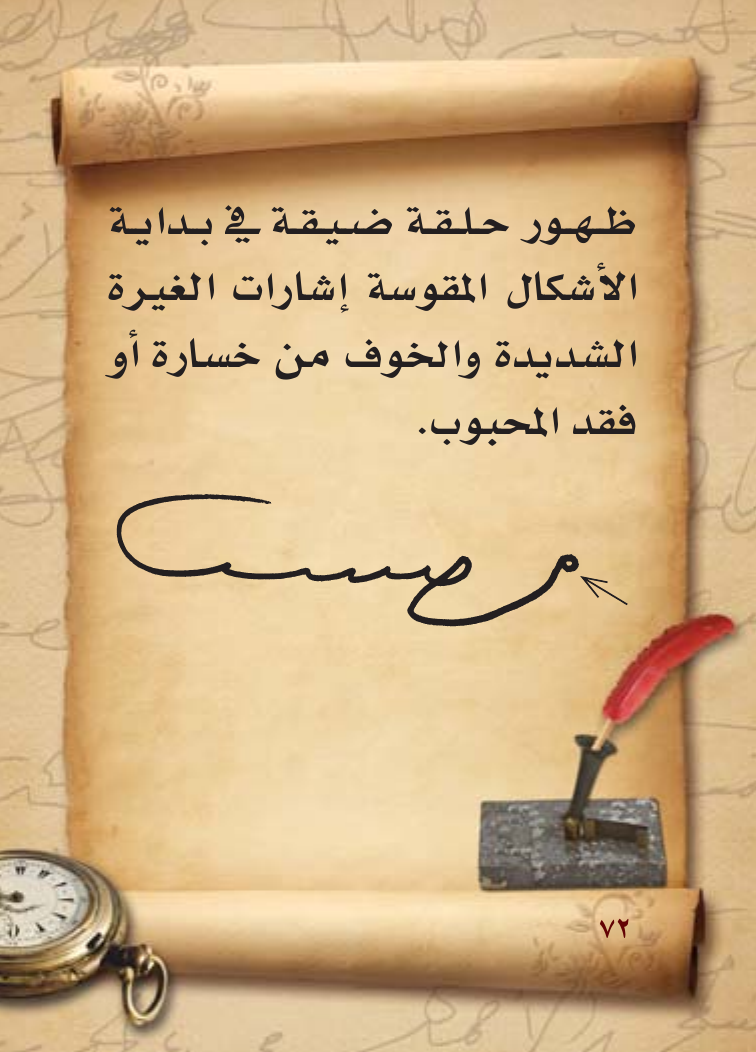 ظهور حلقة ضيقة في بداية
الأشكال المقوسة إشارات الغيرة
الشديدة والخوف من خسارة أو
فقد المحبوب.
٧٢